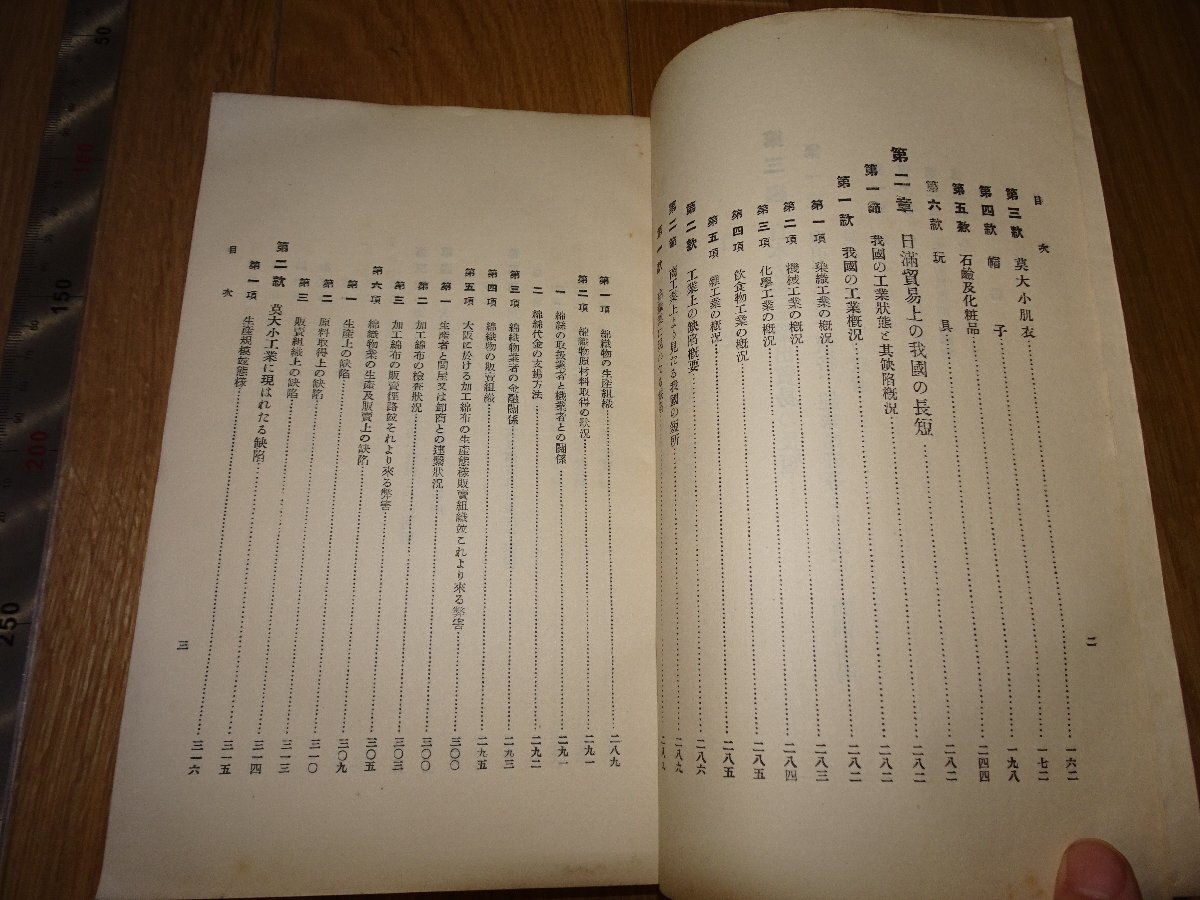 目次
第三款 莫大小肌衣 一六二
第四款 帽子 一七二
第五款 石鹼及化粧品 一九八
第六款 玩具 二四四
第二章 日滿貿易上の我國の長短 二八二
第一節 我國の工業狀態と其缺陷槪況 二八二
第一款 我國の工業槪況 二八二
第一項 染織工業の槪況 二八二
第二項 機械工業の槪況 二八三
第三項 化學工業の槪況 二八四
第四項 飮食物工業の槪況 二八五
第五項 雜工業の槪況 二八五
第二款 工業上の缺陷槪要 二八六
第二節 商工業上より見たる我國の短所 二八九
第一款
二
第一項 綿織物の生産組織 二八九
第二項 綿織物原材料取得の狀況 二九一
一 綿絲の取扱業者と機業者との關係 二九一
二 綿絲代金の支拂方法 二九二
第三項 綿織物業者の金融關係 二九三
第四項 綿織物の販賣組織 二九五
第五項 大阪に於ける加工綿布の生産態樣販賣組織竝これより來る弊害 三〇〇
第一 生産者と問屋又は卸商との連繫狀況 三〇〇
第二 加工綿布の檢査狀況 三〇三
第三 加工綿布の販賣徑路竝それより來る弊害 三〇五
第六項 綿織物業の生産及販賣上の缺陷 三〇九
第一 生産上の缺陷 三一〇
第二 原料取得上の缺陷 三一三
第三 販賣組織上の缺陷 三一四
第二款 莫大小工業に現はれたる缺陷 三一五
第一項 生産規模竝態樣 三一六
目次
三